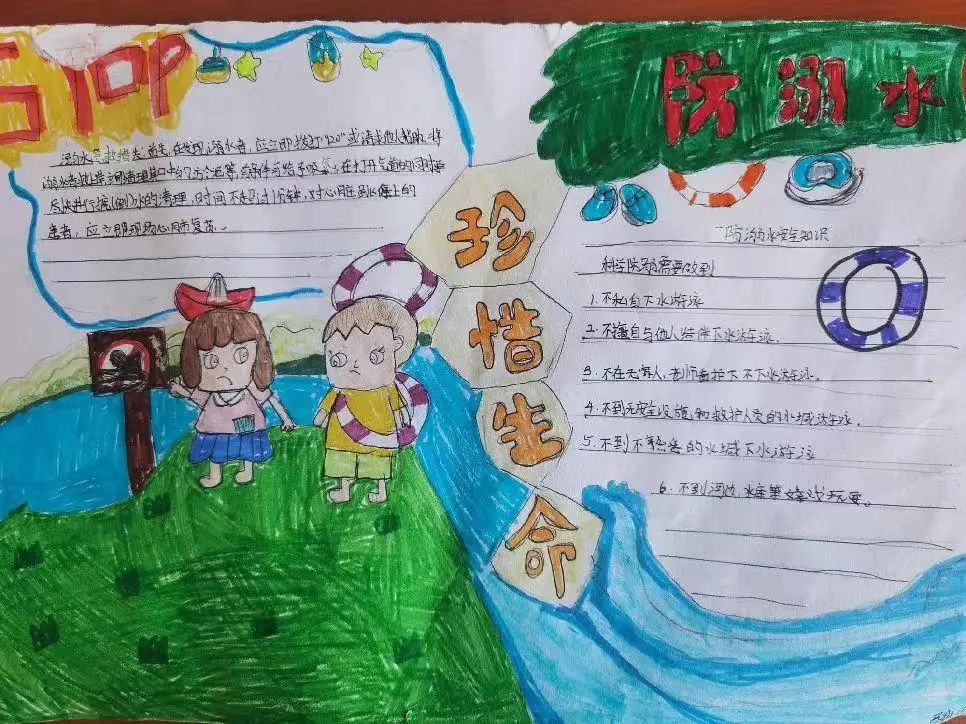 STOP
防溺水
溺水急救措施 首先 在发现溺水者,应立即拨打"120"或请求他人帮助,将
溺水者救上岸 清理其口中的 在打开气道的同时要
尽快进行 水的清理,时间不超过1分钟,对心脏
患者,应立即现场心肺复苏。
珍
惜
生
命
防溺水安全知识
科学 需要做到
1.不私自下水游泳
2.不擅自与他人结伴下水游泳.
3.不在无家人,老师 下水游泳。
4.不到无安全设施,和救护人员的水域游泳.
5.不到不熟悉的水域下水游泳
6.不到河边,水库 嬉戏玩耍。